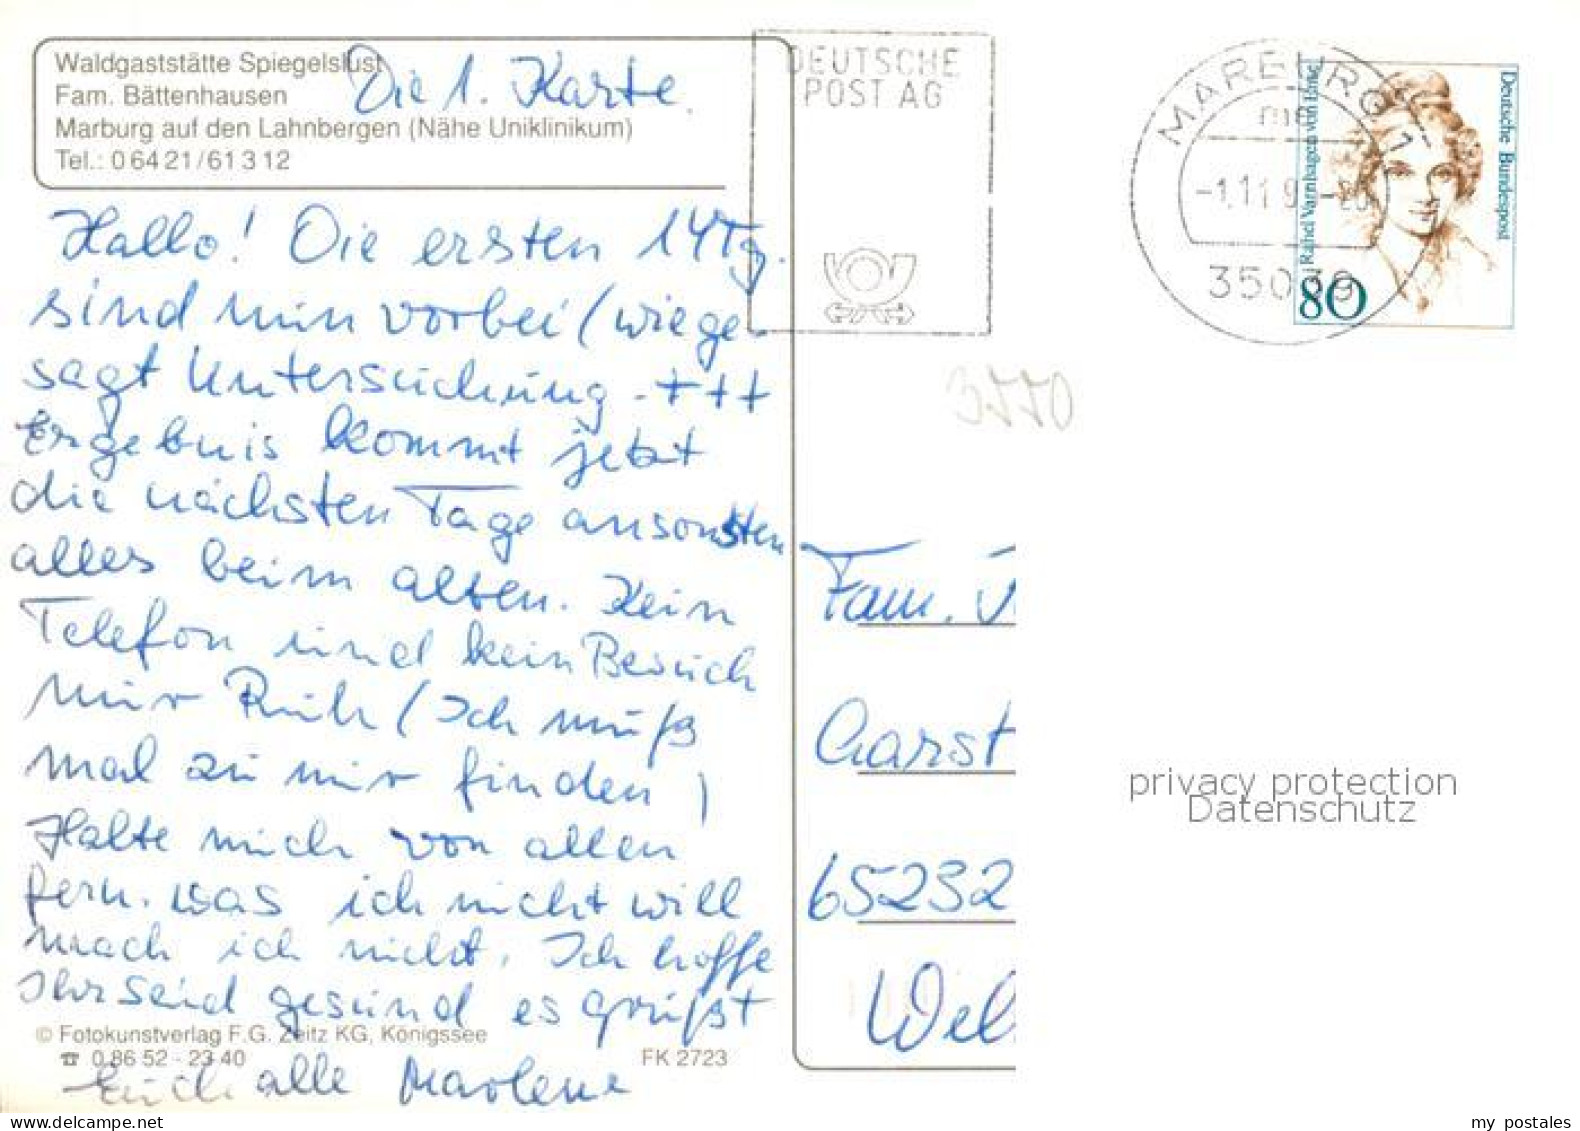 Waldgaststätte Spiegelslust
Fam. Bättenhausen
Marburg auf den Lahnbergen (Nähe Uniklinikum)
Tel.: 0 64 21 / 61 3 12
Die 1. Karte.
Hallo! Die ersten 14 Tg.
sind nun vorbei (wie ge-
sagt Untersuchung +++
Ergebnis kommt jetzt
die nächsten Tage ansonsten
alles beim alten. Kein
Telefon und kein Besuch
nur Ruh (Ich muß
mal zu mir finden)
Halte mich von allen
fern. was ich nicht will
mach ich nicht. Ich hoffe
Ihr seid gesund es grüßt
Euch alle Marlene
© Fotokunstverlag F.G. Zeitz KG, Königssee
☎ 0 86 52 - 23 40
FK 2723
DEUTSCHE
POST AG
MARBURG 1
mc
-1.11.9
35039
Rahel Varnhagen von Ense
Deutsche Bundespost
80
Fam.
Garst
65232
privacy protection
Datenschutz
www.delcampe.net
my postales